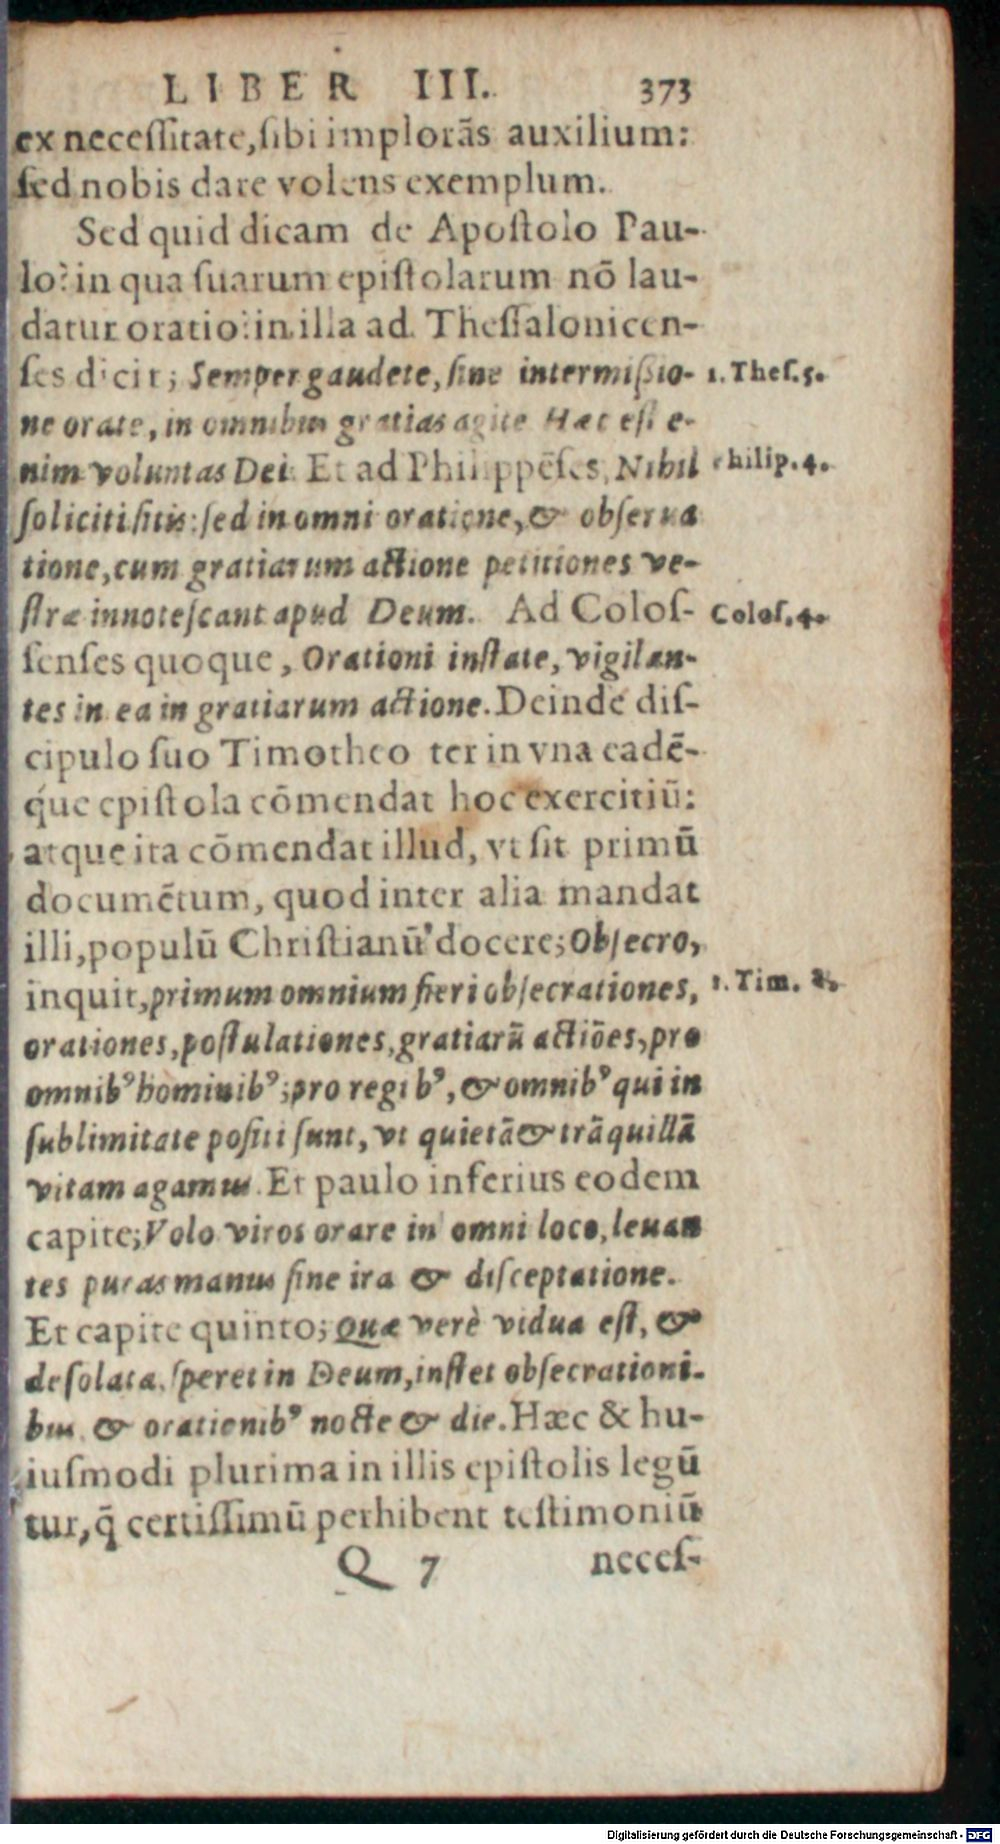 LIBER III. 373
ex neceſſitate, ſibi implorãs auxilium:
ſed nobis dare volens exemplum.
Sed quid dicam de Apoſtolo Pau-
lo? in qua ſuarum epiſtolarum nõ lau-
datur oratio? in illa ad Theſſalonicen-
ſes dicit; Semper gaudete, ſine intermiſsio- 1. Theſ. 5.
ne orate, in omnibus gratias agite Hæc eſt e-
nim voluntas Dei. Et ad Philippẽſes, Nihil Philip. 4.
ſoliciti ſitis: ſed in omni oratione, & obſerua
tione, cum gratiarum actione petitiones ve-
ſtræ innoteſcant apud Deum. Ad Coloſ- Coloſ. 4.
ſenſes quoque, Orationi inſtate, vigilan-
tes in ea in gratiarum actione. Deinde diſ-
cipulo ſuo Timotheo ter in vna eadẽ-
q́ue epiſtola cõmendat hoc exercitiũ:
atque ita cõmendat illud, vt ſit primũ
documẽtum, quod inter alia mandat
illi, populũ Chriſtianũ docere; Obſecro,
inquit, primum omnium fieri obſecrationes, 1. Tim. 2.
orationes, poſtulationes, gratiarũ actiões, pro
omnibꝰ hominibꝰ; pro regibꝰ, & omnibꝰ qui in
ſublimitate poſiti ſunt, vt quietã & trãquillã
vitam agamus. Et paulo inferius eodem
capite; Volo viros orare in omni loco, leuan
tes puras manus ſine ira & diſceptatione.
Et capite quinto; Quæ verè vidua eſt, &
deſolata, ſperet in Deum, inſtet obſecrationi-
bus & orationibꝰ nocte & die. Hæc & hu-
iuſmodi plurima in illis epiſtolis legũ
tur, q̃ certiſſimũ perhibent teſtimoniũ
Q 7 neceſ-
Digitalisierung gefördert durch die Deutsche Forschungsgemeinschaft - DFG